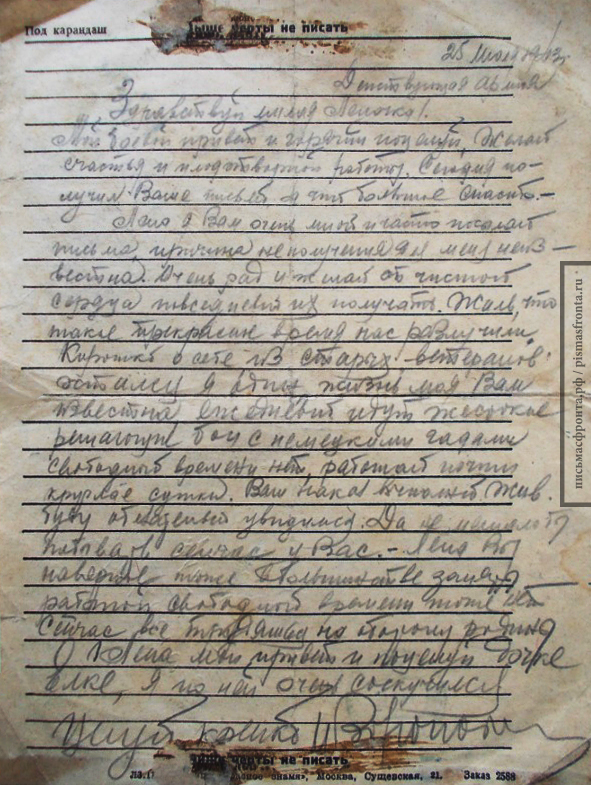 Под карандаш
Выше черты не писать
25 1943г.
Действующая армия
Здравствуй милая Леночка!
Мой боевой привет и горячий поцелуй. Желаю
счастья и плодотворной работы. Сегодня по-
лучил Ваше письмо за что большое спасибо.-
Лена я Вам очень много и часто посылаю
письма, причина не получения для меня неиз-
вестна. Очень рад и желаю от чистого
сердца повседневно их получать. Жаль, что
такое прекрасное время нас разлучили.
Коротко о себе из старых ветеранов
остался я один, жизнь моя Вам
известна ежедневно идут жестокие
решающие бои с немецкими гадами
свободного времени нет, работаю почти
круглые сутки. Ваш наказ выполню жив.
буду обязательно увидимся. Да не мешало бы
побывать сейчас у Вас.- Лена Вы
наверное тоже в большинстве заняты
работой свободного времени тоже нет
Сейчас все на оборону родины
Лена мой привет и поцелуй дочке
Елке, я по ней очень соскучился
Целую крепко
Ниже черты не писать
знамя», Москва, Сущевская, 21. Заказ 2588
письмасфронта.рф / pismasfronta.ru